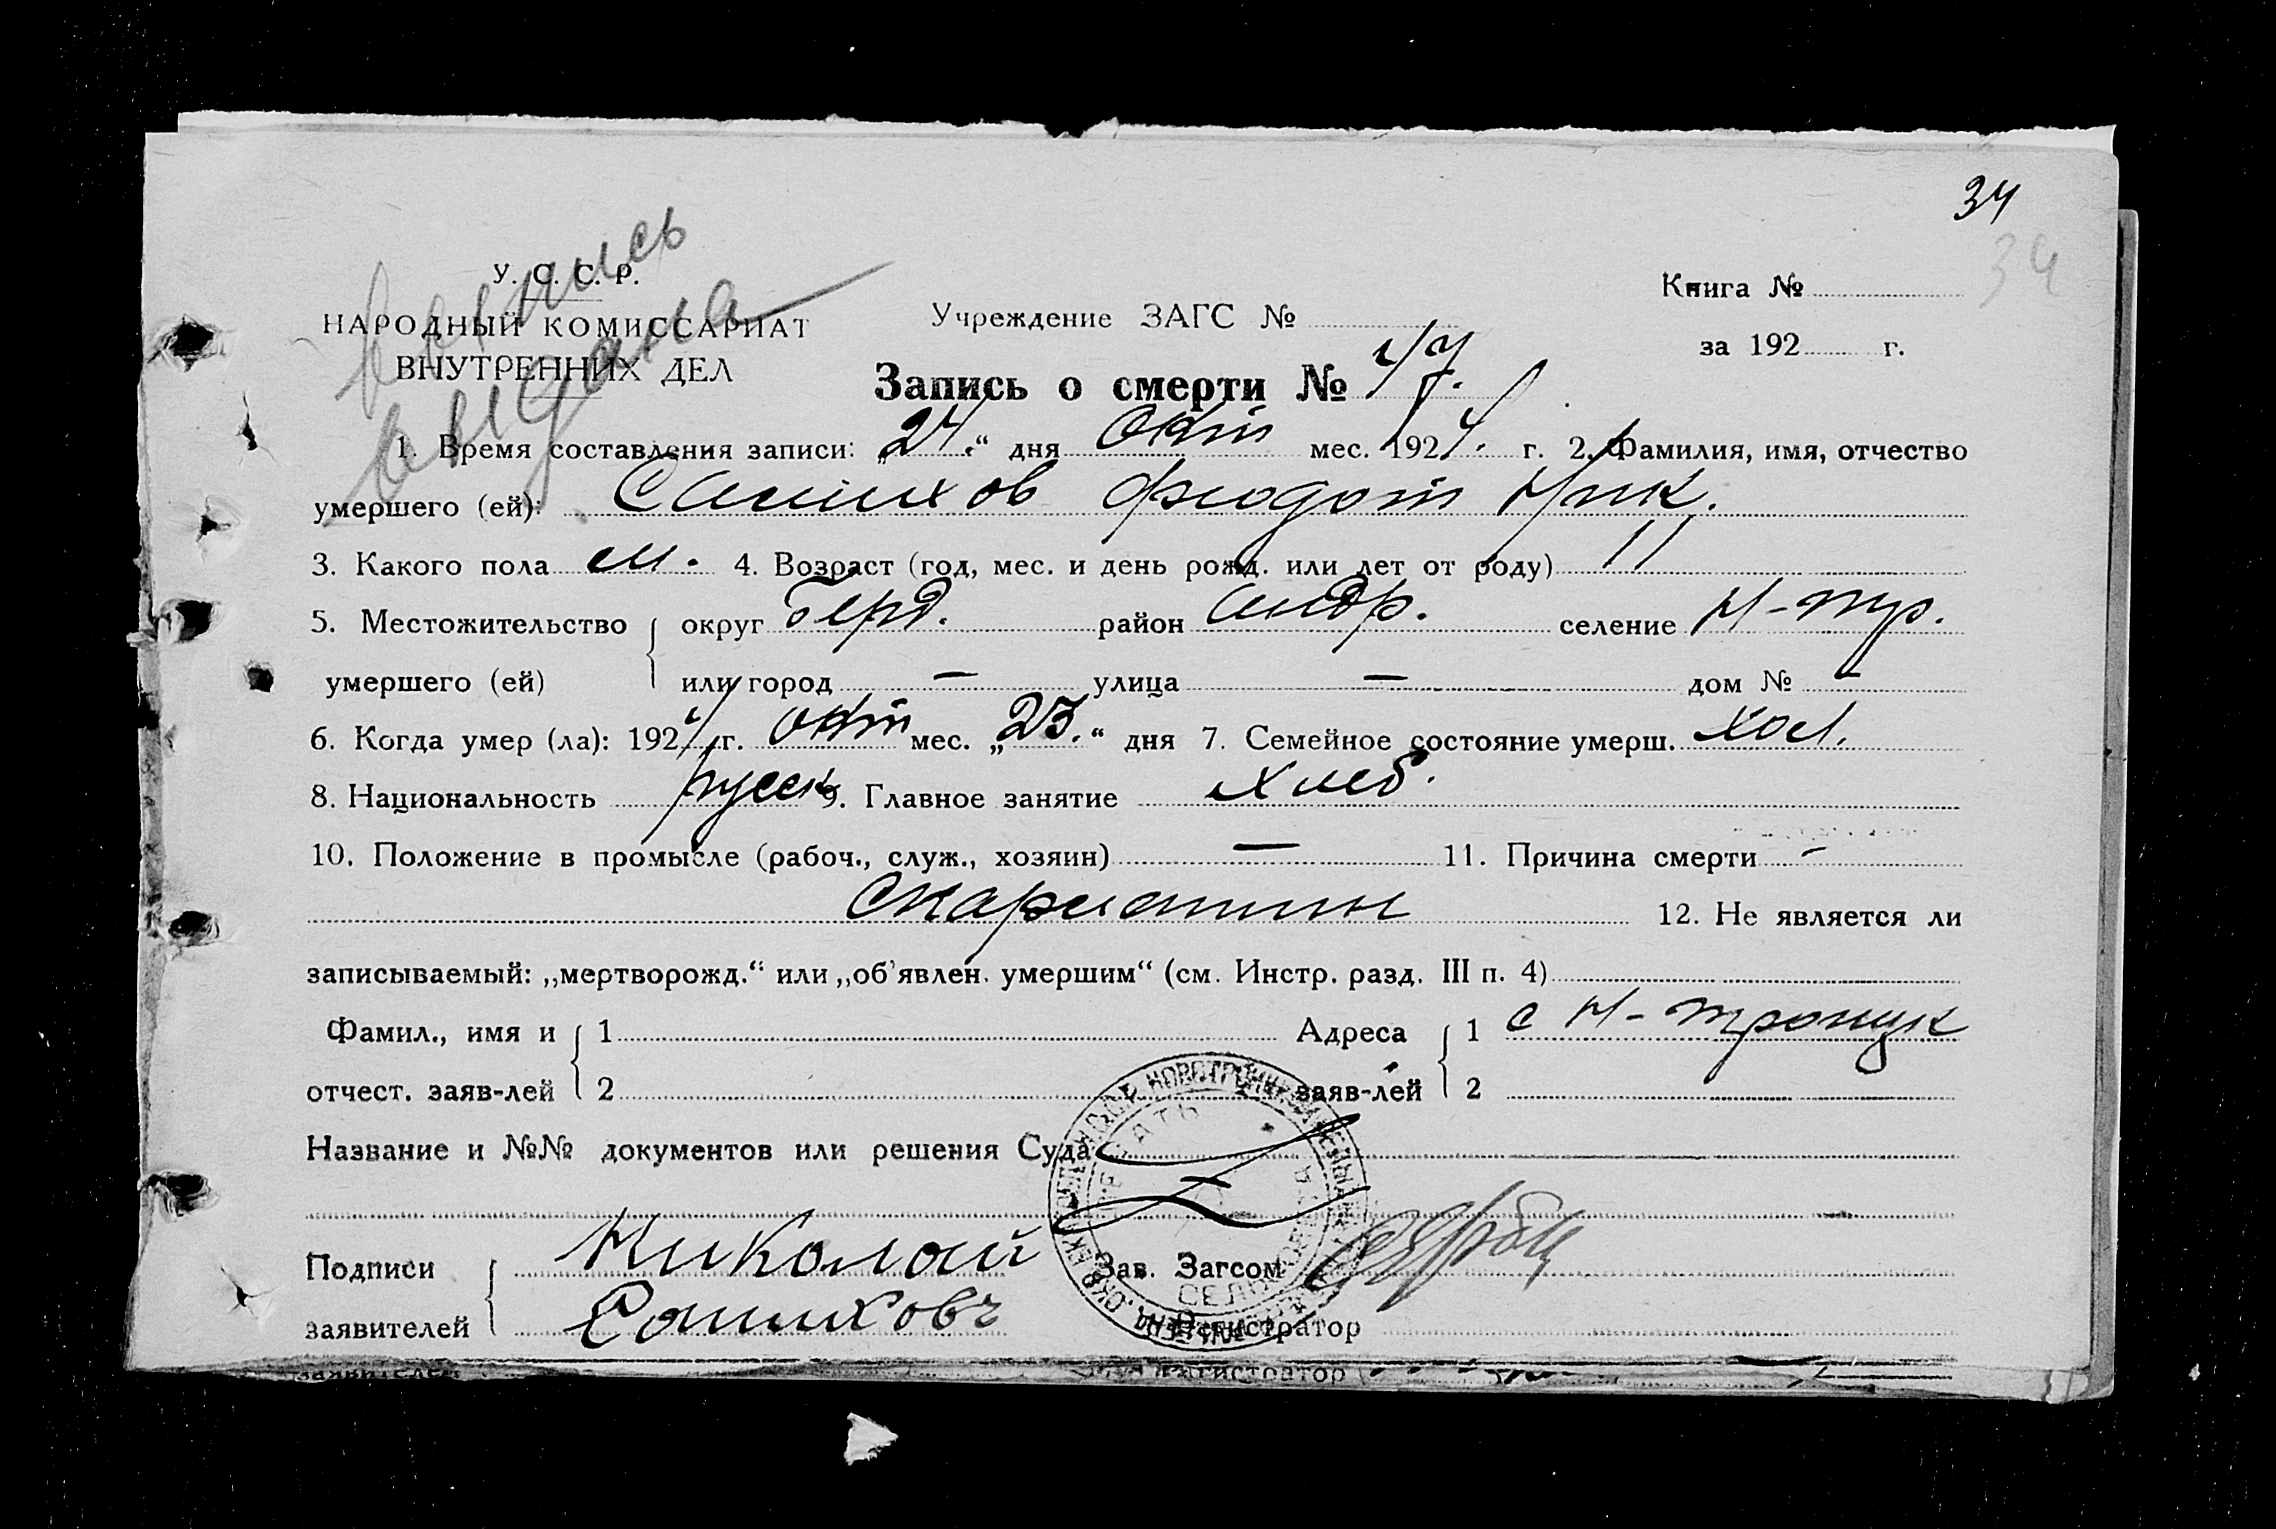 34
34
выпись
выдана
У. С. С. Р.
НАРОДНЫЙ КОМИССАРИАТ
ВНУТРЕННИХ ДЕЛ
Учреждение ЗАГС №
Книга №
за 192 г.
Запись о смерти № 47.
1. Время составления записи: „24.“ дня Окт мес. 1924. г. 2. Фамилия, имя, отчество
умершего (ей): Сашиков Фиодот Ник.
3. Какого пола м. 4. Возраст (год, мес. и день рожд. или лет от роду) 11
5. Местожительство округ Берд. район Андр. селение Н-тр.
умершего (ей) или город — улица — дом № —
6. Когда умер (ла): 1924 г. окт мес. „23.“ дня 7. Семейное состояние умерш. хол.
8. Национальность русск 9. Главное занятие хлеб.
10. Положение в промысле (рабоч., служ., хозяин) — 11. Причина смерти -
Скарлатин
12. Не является ли
записываемый: „мертворожд.“ или „об'явлен. умершим“ (см. Инстр. разд. III п. 4)
Фамил., имя и 1 Адреса 1 с Н-троицк
отчест. заяв-лей 2 заяв-лей 2
Название и №№ документов или решения Суда
Подписи Николай Зав. Загсом
заявителей Сашиковъ Регистратор
заявителей Регистратор